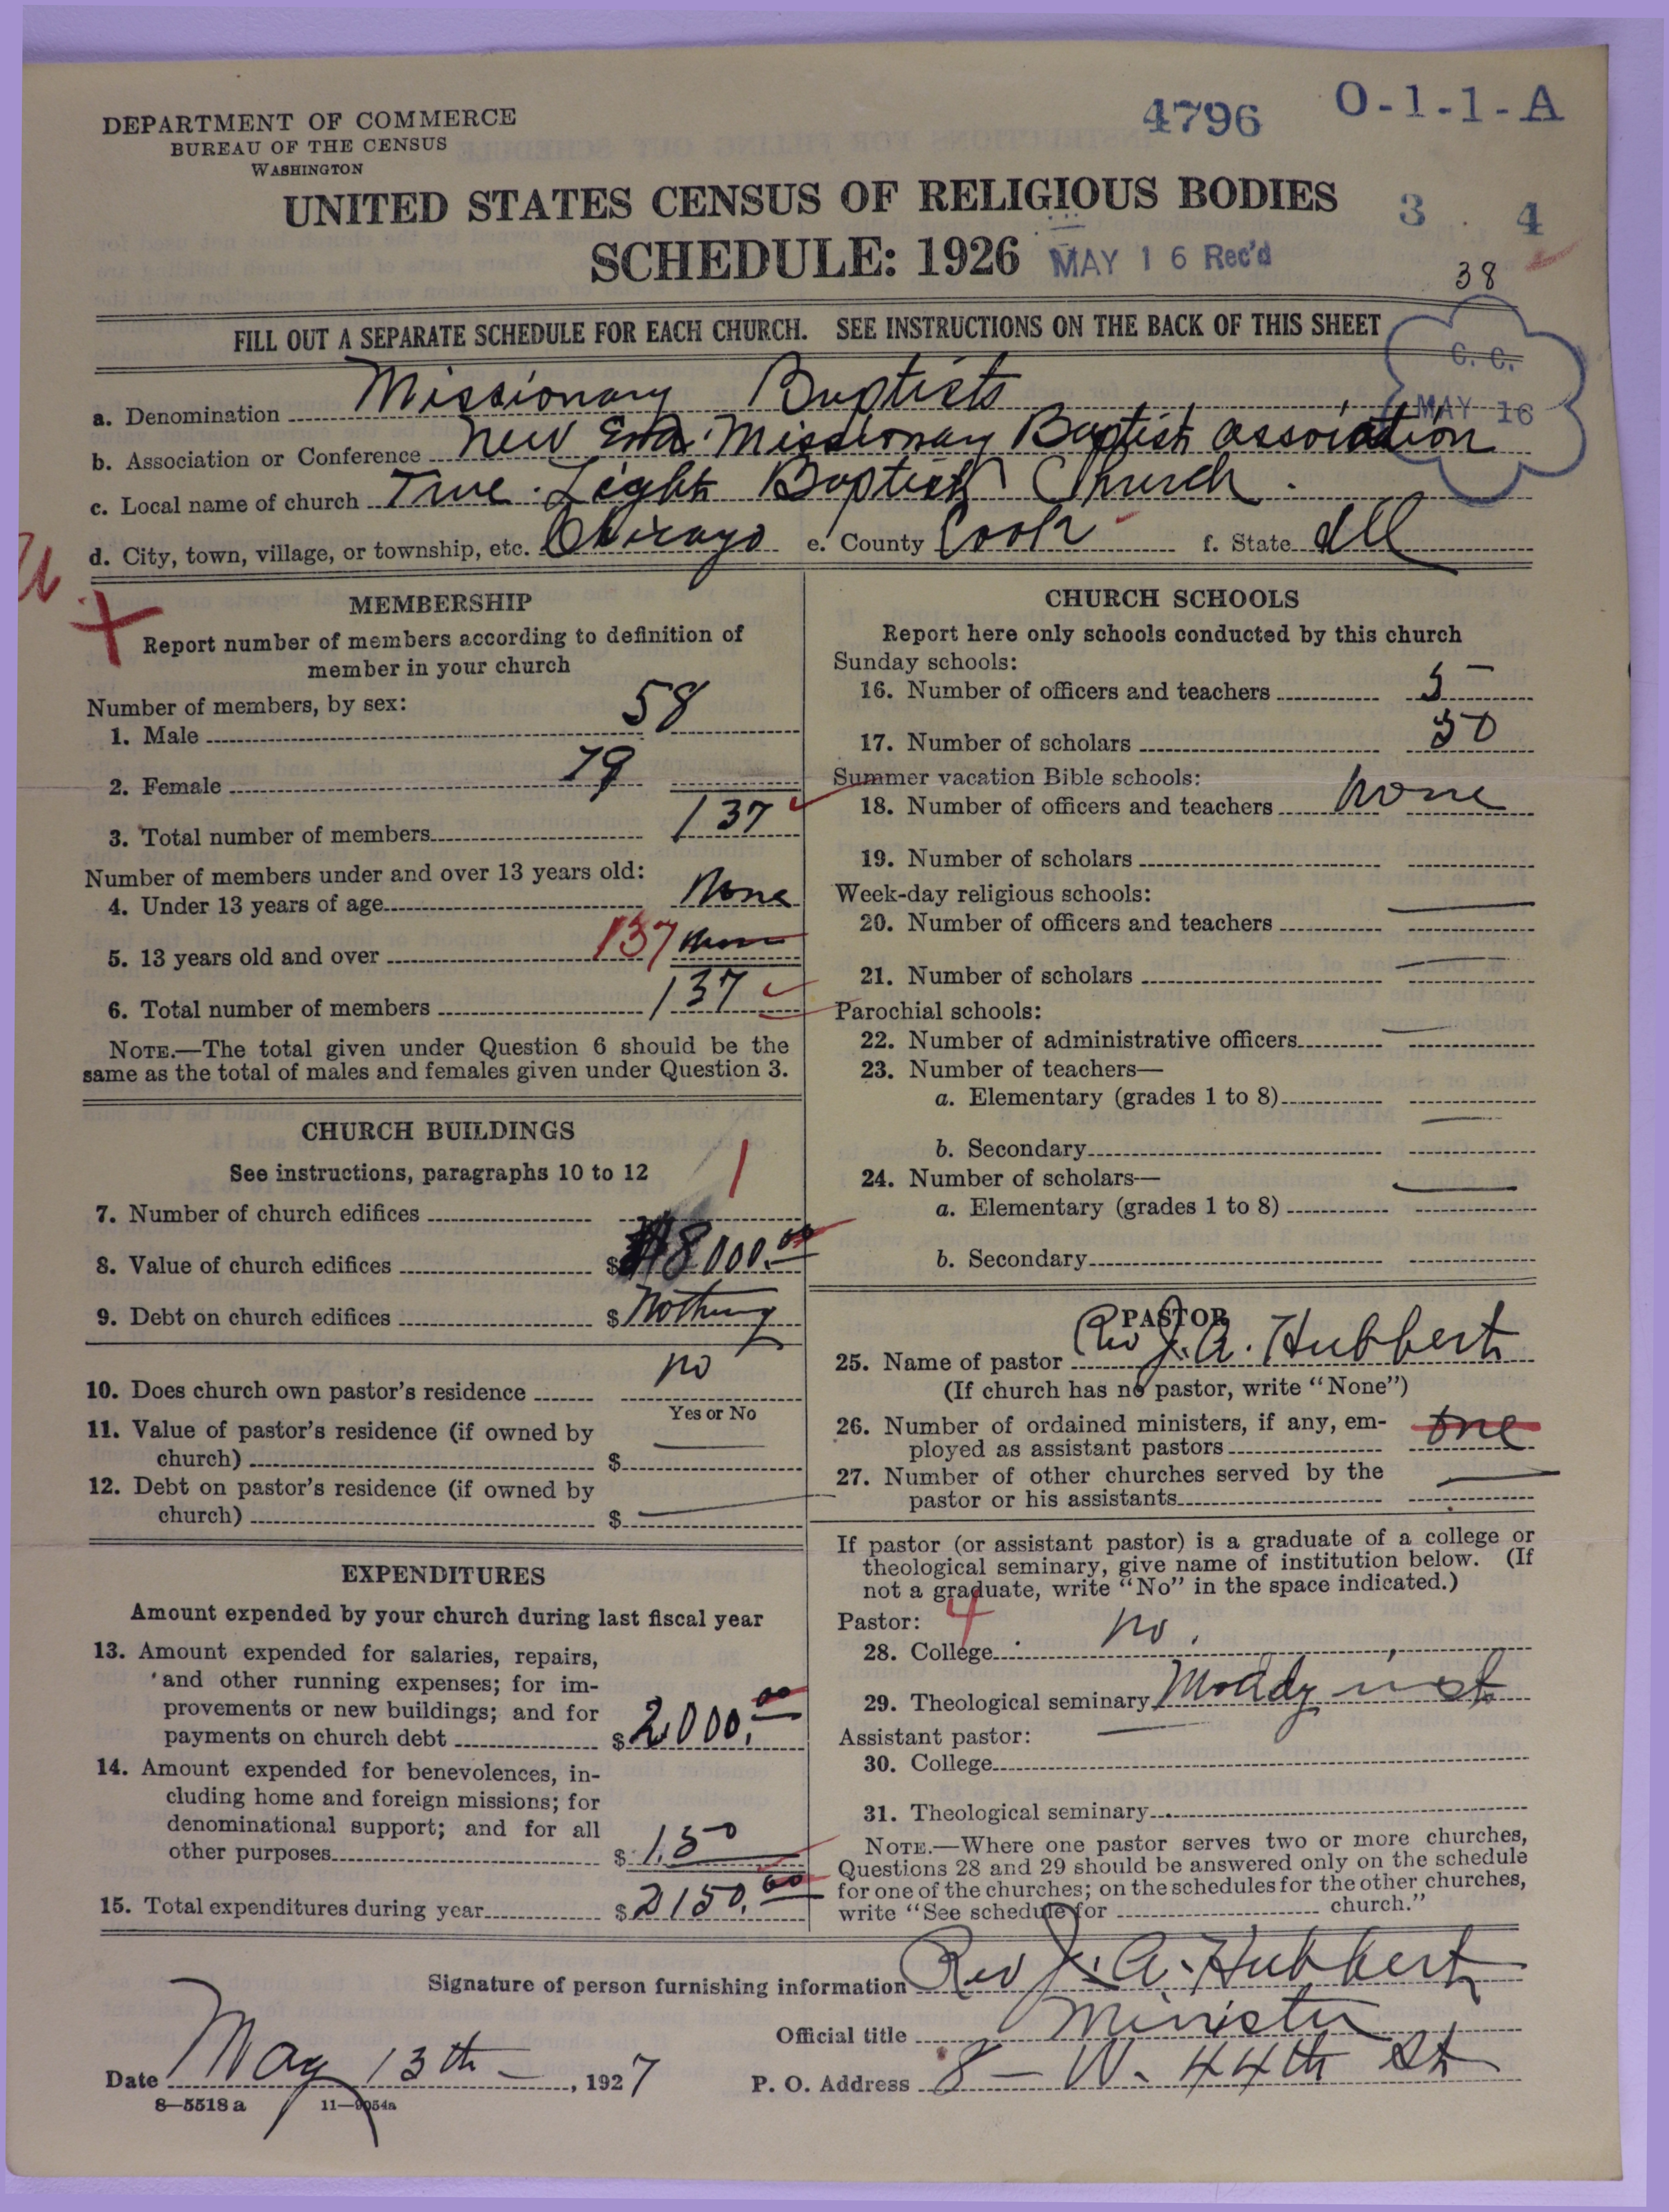 DEPARTMENT OF COMMERCE
BUREAU OF THE CENSUS
WASHINGTON
4796
O-1-1-A
UNITED STATES CENSUS OF RELIGIOUS BODIES
3 4
SCHEDULE: 1926
MAY 16 Rec'd
38
FILL OUT A SEPARATE SCHEDULE FOR EACH CHURCH. SEE INSTRUCTIONS ON THE BACK OF THIS SHEET
C. C.
MAY 16
a. Denomination Missionary Baptists
b. Association or Conference New Era Missionary Baptist association
c. Local name of church True Light Baptist Church.
d. City, town, village, or township, etc. Chicago e. County Cook f. State Ill
MEMBERSHIP
Report number of members according to definition of
member in your church
Number of members, by sex:
1. Male 58
2. Female 79
3. Total number of members 137
Number of members under and over 13 years old:
4. Under 13 years of age None
5. 13 years old and over 137
6. Total number of members 137
NOTE.—The total given under Question 6 should be the
same as the total of males and females given under Question 3.
CHURCH BUILDINGS
See instructions, paragraphs 10 to 12
7. Number of church edifices 1
8. Value of church edifices $8000.00
9. Debt on church edifices $ Nothing
10. Does church own pastor's residence no
Yes or No
11. Value of pastor's residence (if owned by
church) $
12. Debt on pastor's residence (if owned by
church) $
EXPENDITURES
Amount expended by your church during last fiscal year
13. Amount expended for salaries, repairs,
and other running expenses; for im-
provements or new buildings; and for
payments on church debt $2000.00
14. Amount expended for benevolences, in-
cluding home and foreign missions; for
denominational support; and for all
other purposes $150
15. Total expenditures during year $2150.00
CHURCH SCHOOLS
Report here only schools conducted by this church
Sunday schools:
16. Number of officers and teachers 5
17. Number of scholars 50
Summer vacation Bible schools:
18. Number of officers and teachers none
19. Number of scholars
Week-day religious schools:
20. Number of officers and teachers
21. Number of scholars
Parochial schools:
22. Number of administrative officers
23. Number of teachers—
a. Elementary (grades 1 to 8)
b. Secondary
24. Number of scholars—
a. Elementary (grades 1 to 8)
b. Secondary
PASTOR
25. Name of pastor Rev J. A. Hubbert
(If church has no pastor, write "None")
26. Number of ordained ministers, if any, em-
ployed as assistant pastors one
27. Number of other churches served by the
pastor or his assistants
If pastor (or assistant pastor) is a graduate of a college or
theological seminary, give name of institution below. (If
not a graduate, write "No" in the space indicated.)
Pastor: 4
28. College no.
29. Theological seminary Moody inst
Assistant pastor:
30. College
31. Theological seminary
NOTE.—Where one pastor serves two or more churches,
Questions 28 and 29 should be answered only on the schedule
for one of the churches; on the schedules for the other churches,
write "See schedule for church."
Signature of person furnishing information Rev J. A. Hubbert
Official title Minister
Date May 13th, 1927
P. O. Address 8 - W. 44th St
8—5518 a 11—9054a